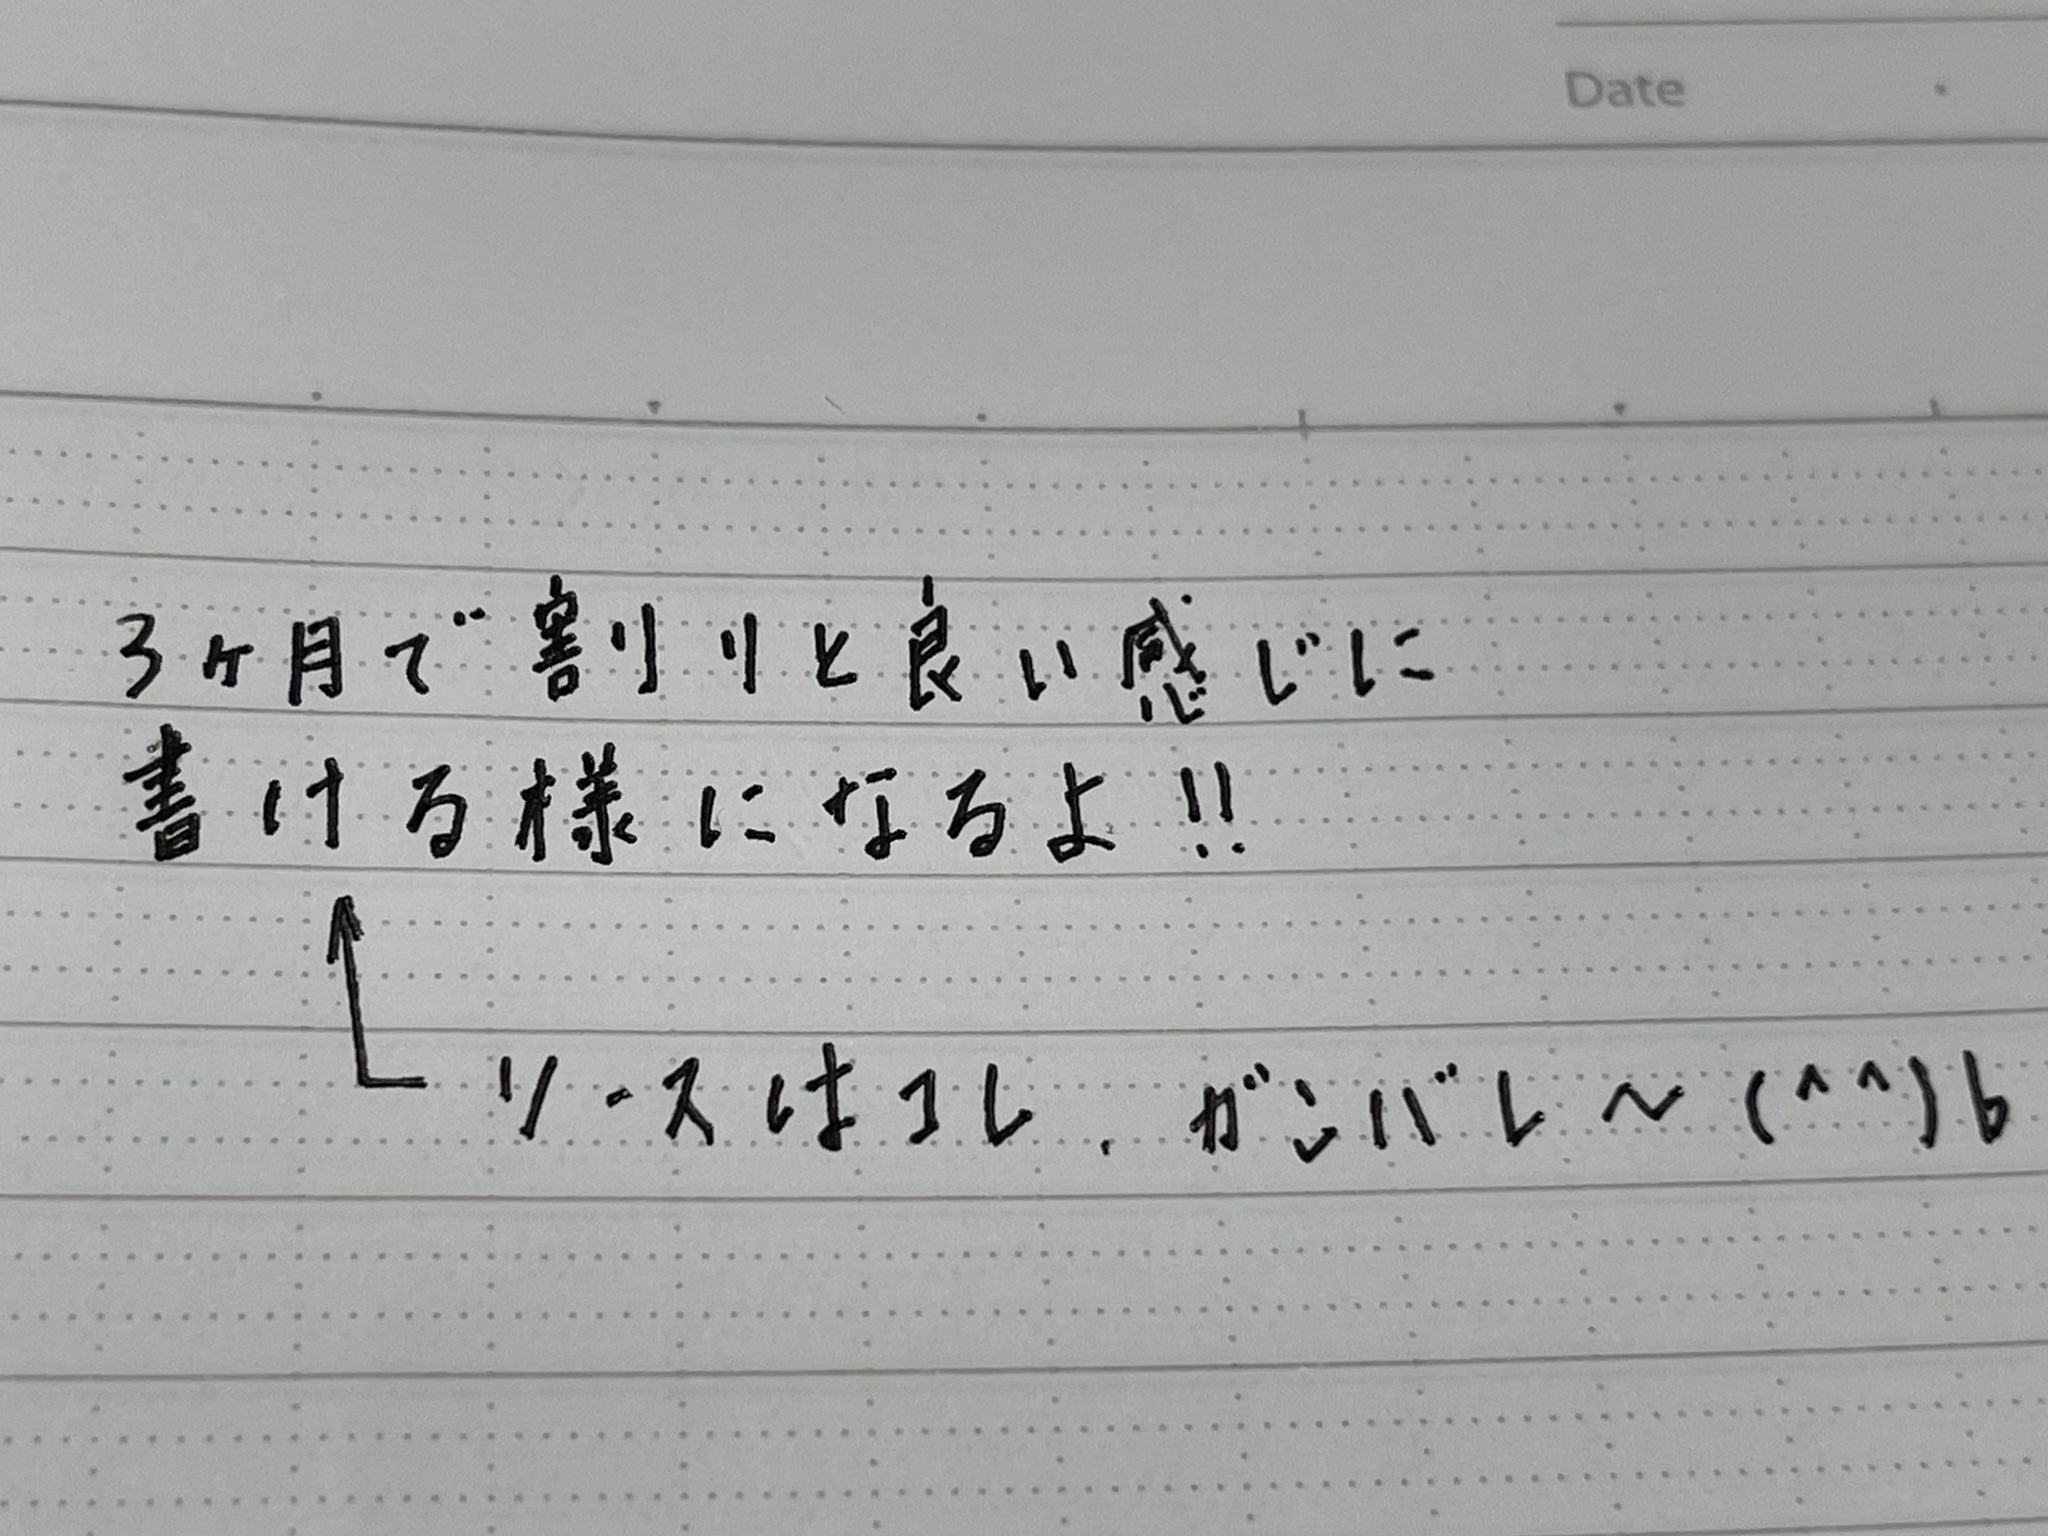 Date
3ヶ月で割りと良い感じに
書ける様になるよ!!
ソースはコレ. ガンバレ〜(^^)b